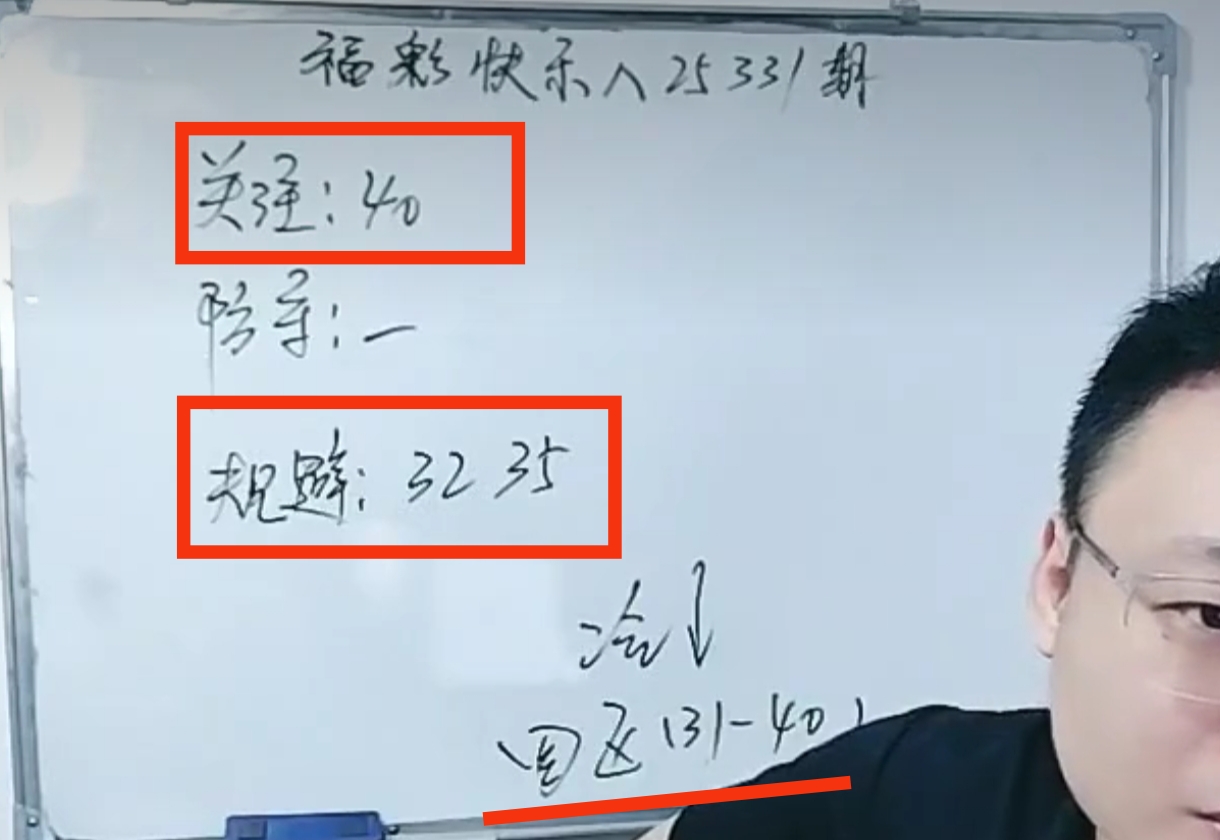 福彩快乐八25331期
关注:40
防守:一
规避:32 35
冷↓
四区(31-40)